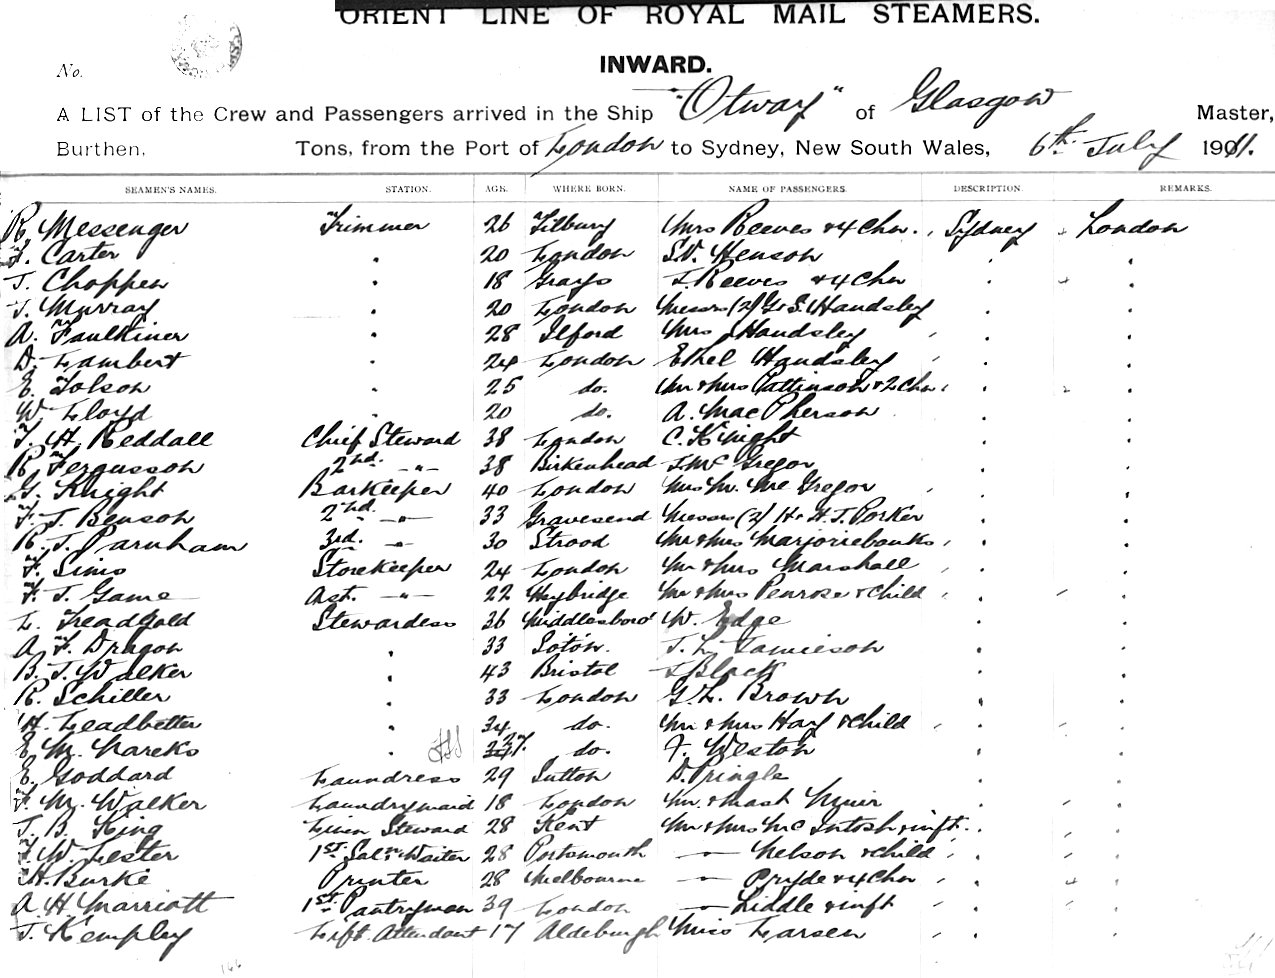 ORIENT LINE OF ROYAL MAIL STEAMERS.
INWARD.
No.
A LIST of the Crew and Passengers arrived in the Ship "Otway" of Glasgow Master,
Burthen, Tons, from the Port of London to Sydney, New South Wales, 6th July 1911.
SEAMEN'S NAMES. STATION. AGE. WHERE BORN. NAME OF PASSENGERS. DESCRIPTION. REMARKS.
R. Messenger Trimmer 26 Tilbury Mrs Reeves & 4 Chn. Sydney London
F. Carter 20 London S.V. Henson
J. Choppen 18 Grays I. Reeves & 4 Chn
J. Murray 20 London Messrs (2) G & S. Handsley
A. Faulkiner 28 Ilford Mrs Handsley
D. Lambert 24 London Ethel Handsley
E. Tolson 25 do. Mr & Mrs Pattinson & 2 Chn
W. Lloyd 20 do. A. MacPherson
F. H. Reddall Chief Steward 38 London C. Knight
R. Fergusson 2nd. -"- 38 Birkenhead J. McGregor
G. Knight Barkeeper 40 London Mrs M. McGregor
F. J. Benson 2nd. -"- 33 Gravesend Messrs (2) H & H. J. Porker
R. J. Parnham 3rd. -"- 30 Strood Mr & Mrs Marjoriebanks
F. Sims Storekeeper 24 London Mr & Mrs Marshall
F. J. Game Ast. -"- 22 Heybridge Mr & Mrs Penrose & child
L. Treadgold Stewardess 36 Middlesboro' W. Edge
A. F. Dragon 33 Soton. J. L. Jamieson
B. J. Walker 43 Bristol I. Black
R. Schiller 33 London G. L. Brown
H. Leadbetter 34 do. Mr & Mrs Hay & child
E. M. Nareks 37 do. F. Weston
E. Goddard Laundress 29 Sutton D. Pringle
F. M. Walker Laundrymaid 18 London Mr. & Mast Muir
J. B. King Linen Steward 28 Kent Mr & Mrs McIntosh & inft.
F. W. Lester 1st. Saln. Waiter 28 Portsmouth — Nelson & child
H. Burke Printer 28 Melbourne — Pryde & 4 Chn
A. H. Marriott 1st. Pantryman 39 London — Liddle & inft
J. Kempley Lift Attendant 17 Aldeburgh Miss Larsen